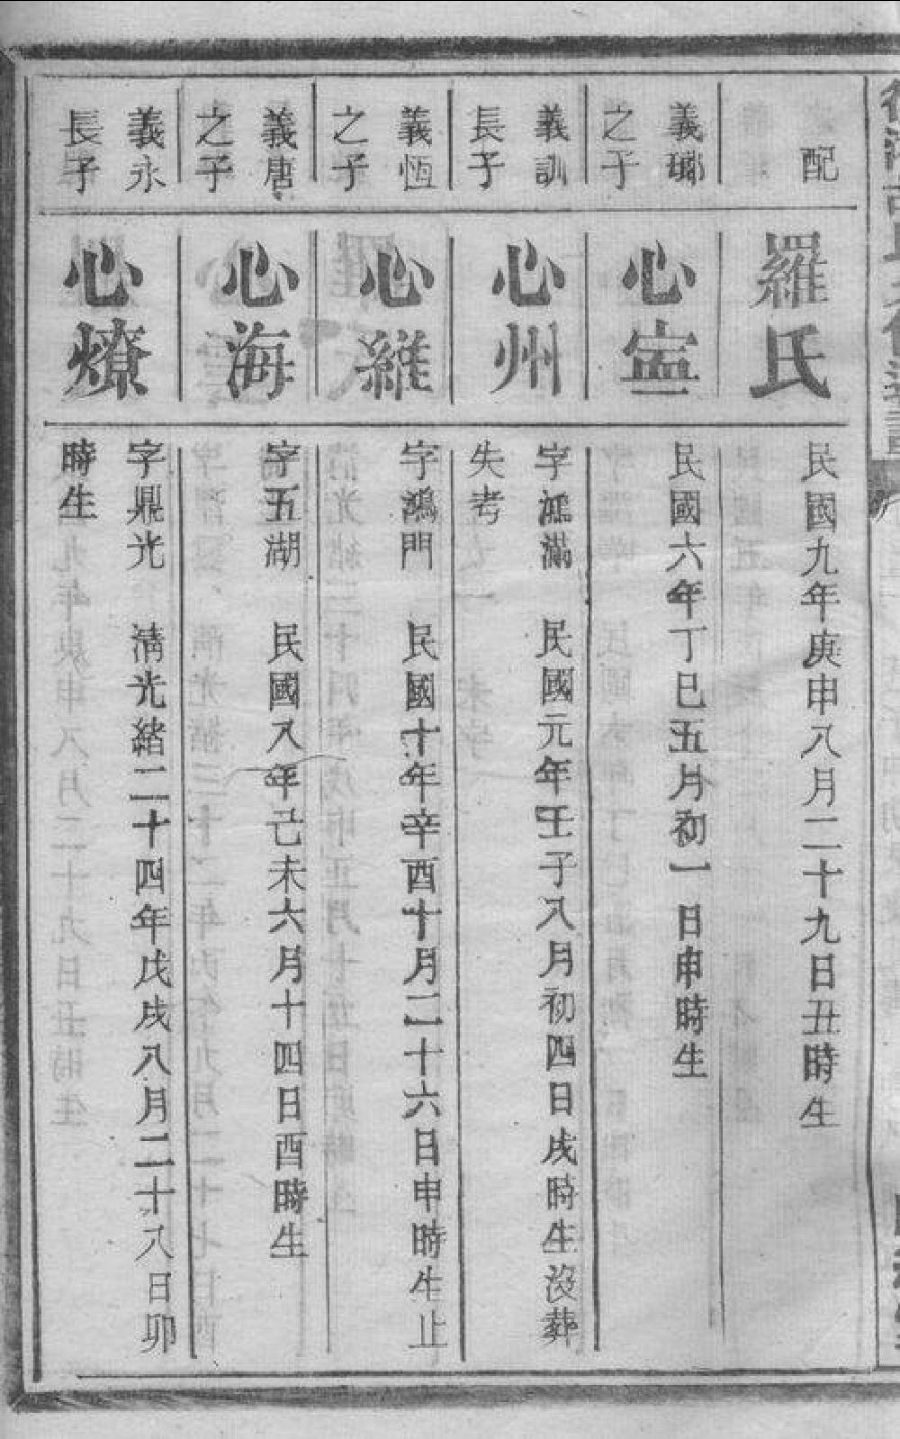 配
羅氏
民國九年庚申八月二十九日丑時生
義瑯
之子
心寍
民國六年丁巳五月初一日申時生
義訓
長子
心州
字滿 民國元年壬子八月初四日戌時生沒葬
失考
義恆
之子
心維
字鴻門 民國十年辛酉十月二十六日申時生止
義唐
之子
心海
字五湖 民國八年己未六月十四日酉時生
義永
長子
心燎
字鼎光 清光緒二十四年戊戌八月二十八日卯
時生